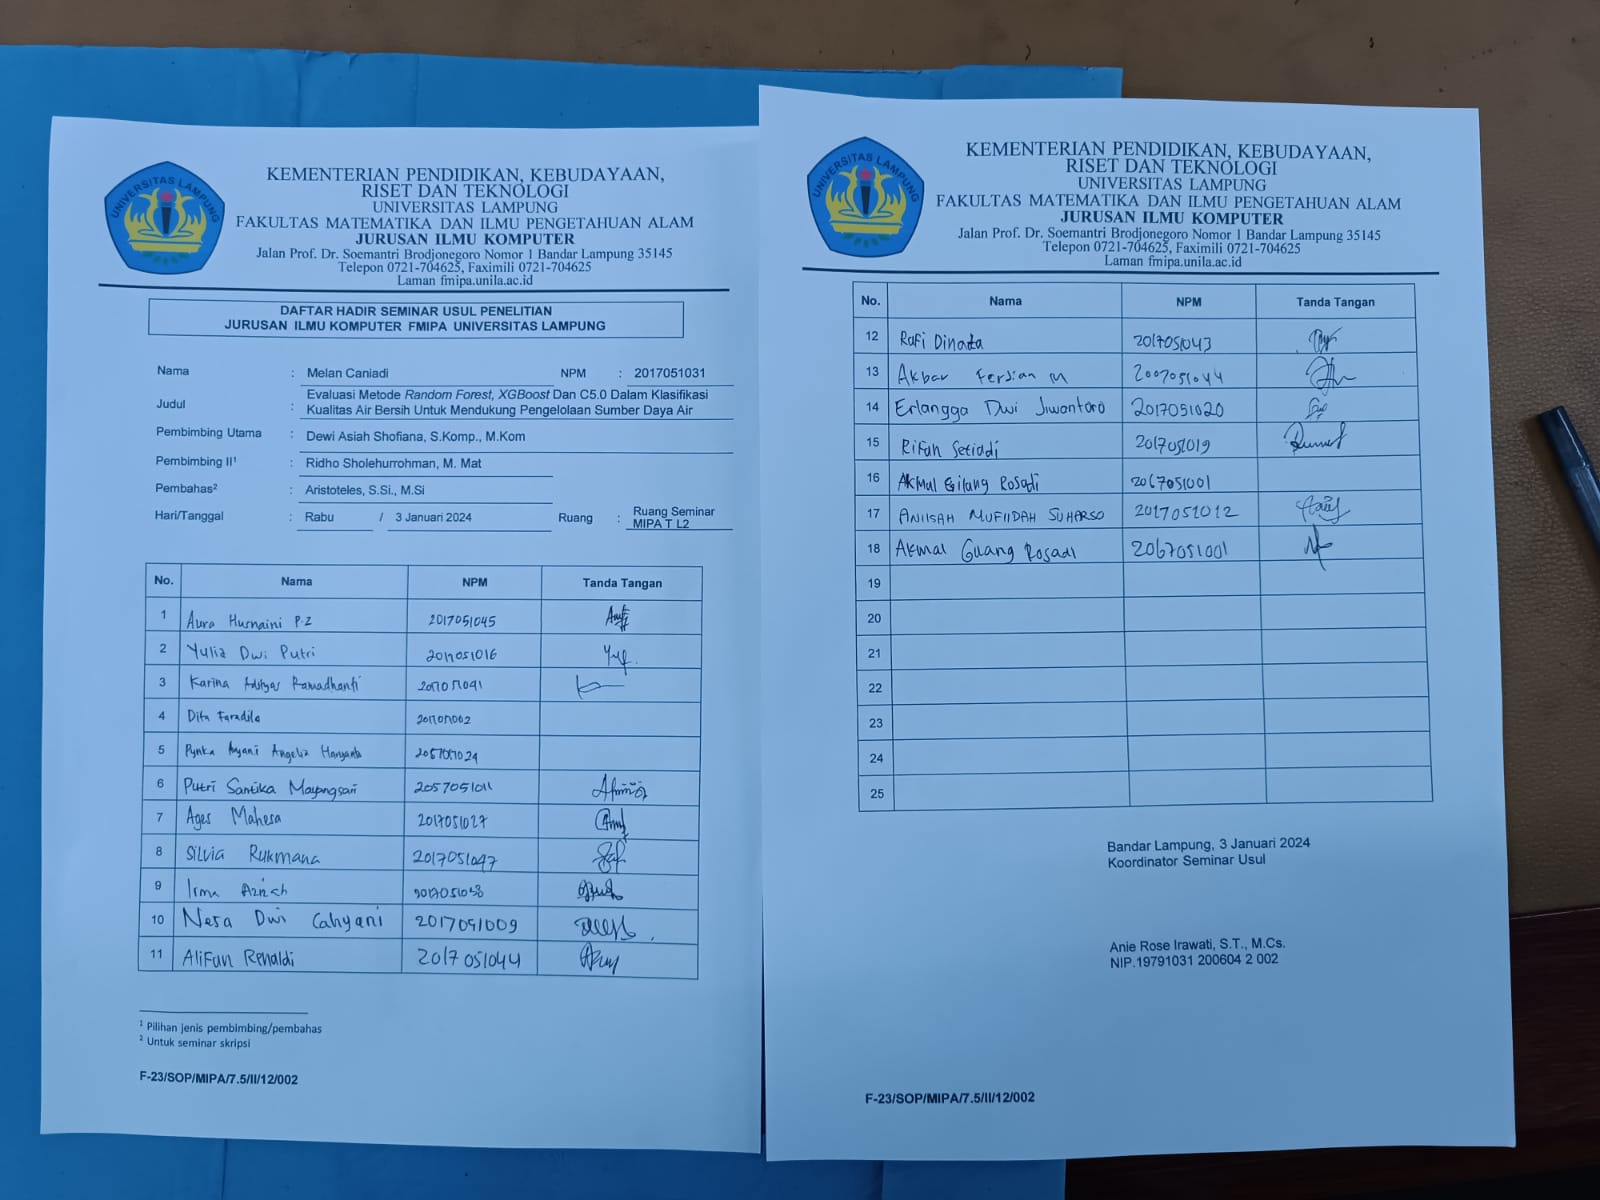 UNIVERSITAS LAMPUNG
KEMENTERIAN PENDIDIKAN, KEBUDAYAAN,
RISET DAN TEKNOLOGI
UNIVERSITAS LAMPUNG
FAKULTAS MATEMATIKA DAN ILMU PENGETAHUAN ALAM
JURUSAN ILMU KOMPUTER
Jalan Prof. Dr. Soemantri Brodjonegoro Nomor 1 Bandar Lampung 35145
Telepon 0721-704625, Faximili 0721-704625
Laman fmipa.unila.ac.id
DAFTAR HADIR SEMINAR USUL PENELITIAN
JURUSAN ILMU KOMPUTER FMIPA UNIVERSITAS LAMPUNG
Nama : Melan Caniadi NPM : 2017051031
Judul : Evaluasi Metode Random Forest, XGBoost Dan C5.0 Dalam Klasifikasi
Kualitas Air Bersih Untuk Mendukung Pengelolaan Sumber Daya Air
Pembimbing Utama : Dewi Asiah Shofiana, S.Komp., M.Kom
Pembimbing II¹ : Ridho Sholehurrohman, M. Mat
Pembahas² : Aristoteles, S.Si., M.Si
Hari/Tanggal : Rabu / 3 Januari 2024 Ruang : Ruang Seminar
MIPA T L2
No. Nama NPM Tanda Tangan
1 Aura Husnaini P.Z 2017051045
2 Yulia Dwi Putri 2017051016
3 Karina Ramadhanti
4 Dita Faradila
5 Angelia
6 Putri Santika Mayangsari 2057051011
7 Ages Mahesa 2017051027
8 Silvia Rukmana 2017051047
9 Irma Azizah
10 Nesa Dwi Cahyani 2017051009
11 Alifan Renaldi 2017051044
¹ Pilihan jenis pembimbing/pembahas
² Untuk seminar skripsi
F-23/SOP/MIPA/7.5/II/12/002
UNIVERSITAS LAMPUNG
KEMENTERIAN PENDIDIKAN, KEBUDAYAAN,
RISET DAN TEKNOLOGI
UNIVERSITAS LAMPUNG
FAKULTAS MATEMATIKA DAN ILMU PENGETAHUAN ALAM
JURUSAN ILMU KOMPUTER
Jalan Prof. Dr. Soemantri Brodjonegoro Nomor 1 Bandar Lampung 35145
Telepon 0721-704625, Faximili 0721-704625
Laman fmipa.unila.ac.id
No. Nama NPM Tanda Tangan
12 Rafi Dinata 2017051043
13 Akbar Ferdian M
14 Erlangga Dwi Jiwantoro 2017051020
15 Rifan Setiadi 2017051019
16 Akmal Gilang Rosadi 2067051001
17 ANIISAH MUFIIDAH SUHARSO 2017051012
18 Akmal Gilang Rosadi 2067051001
19
20
21
22
23
24
25
Bandar Lampung, 3 Januari 2024
Koordinator Seminar Usul
Anie Rose Irawati, S.T., M.Cs.
NIP.19791031 200604 2 002
F-23/SOP/MIPA/7.5/II/12/002